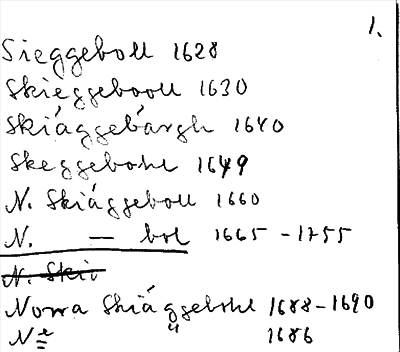 1.
Sieggeboll 1628
Skieggebooll 1630
Skiággebárgh 1640
Skeggebohl 1649
N. Skiäggeboll 1660
N. — bol 1665 - 1755
N. Ski
Norra Skiäggebohl 1688-1690
N 1686